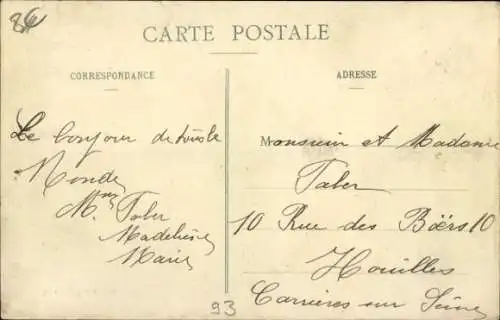 86
CARTE POSTALE
CORRESPONDANCE
Le bonjour de tous le
Monde
Mme Taler
Madeleine
Marie
ADRESSE
Monsieur et Madame
Taler
10 Rue des Boërs 10
Houilles
Carrières sur Seine
93